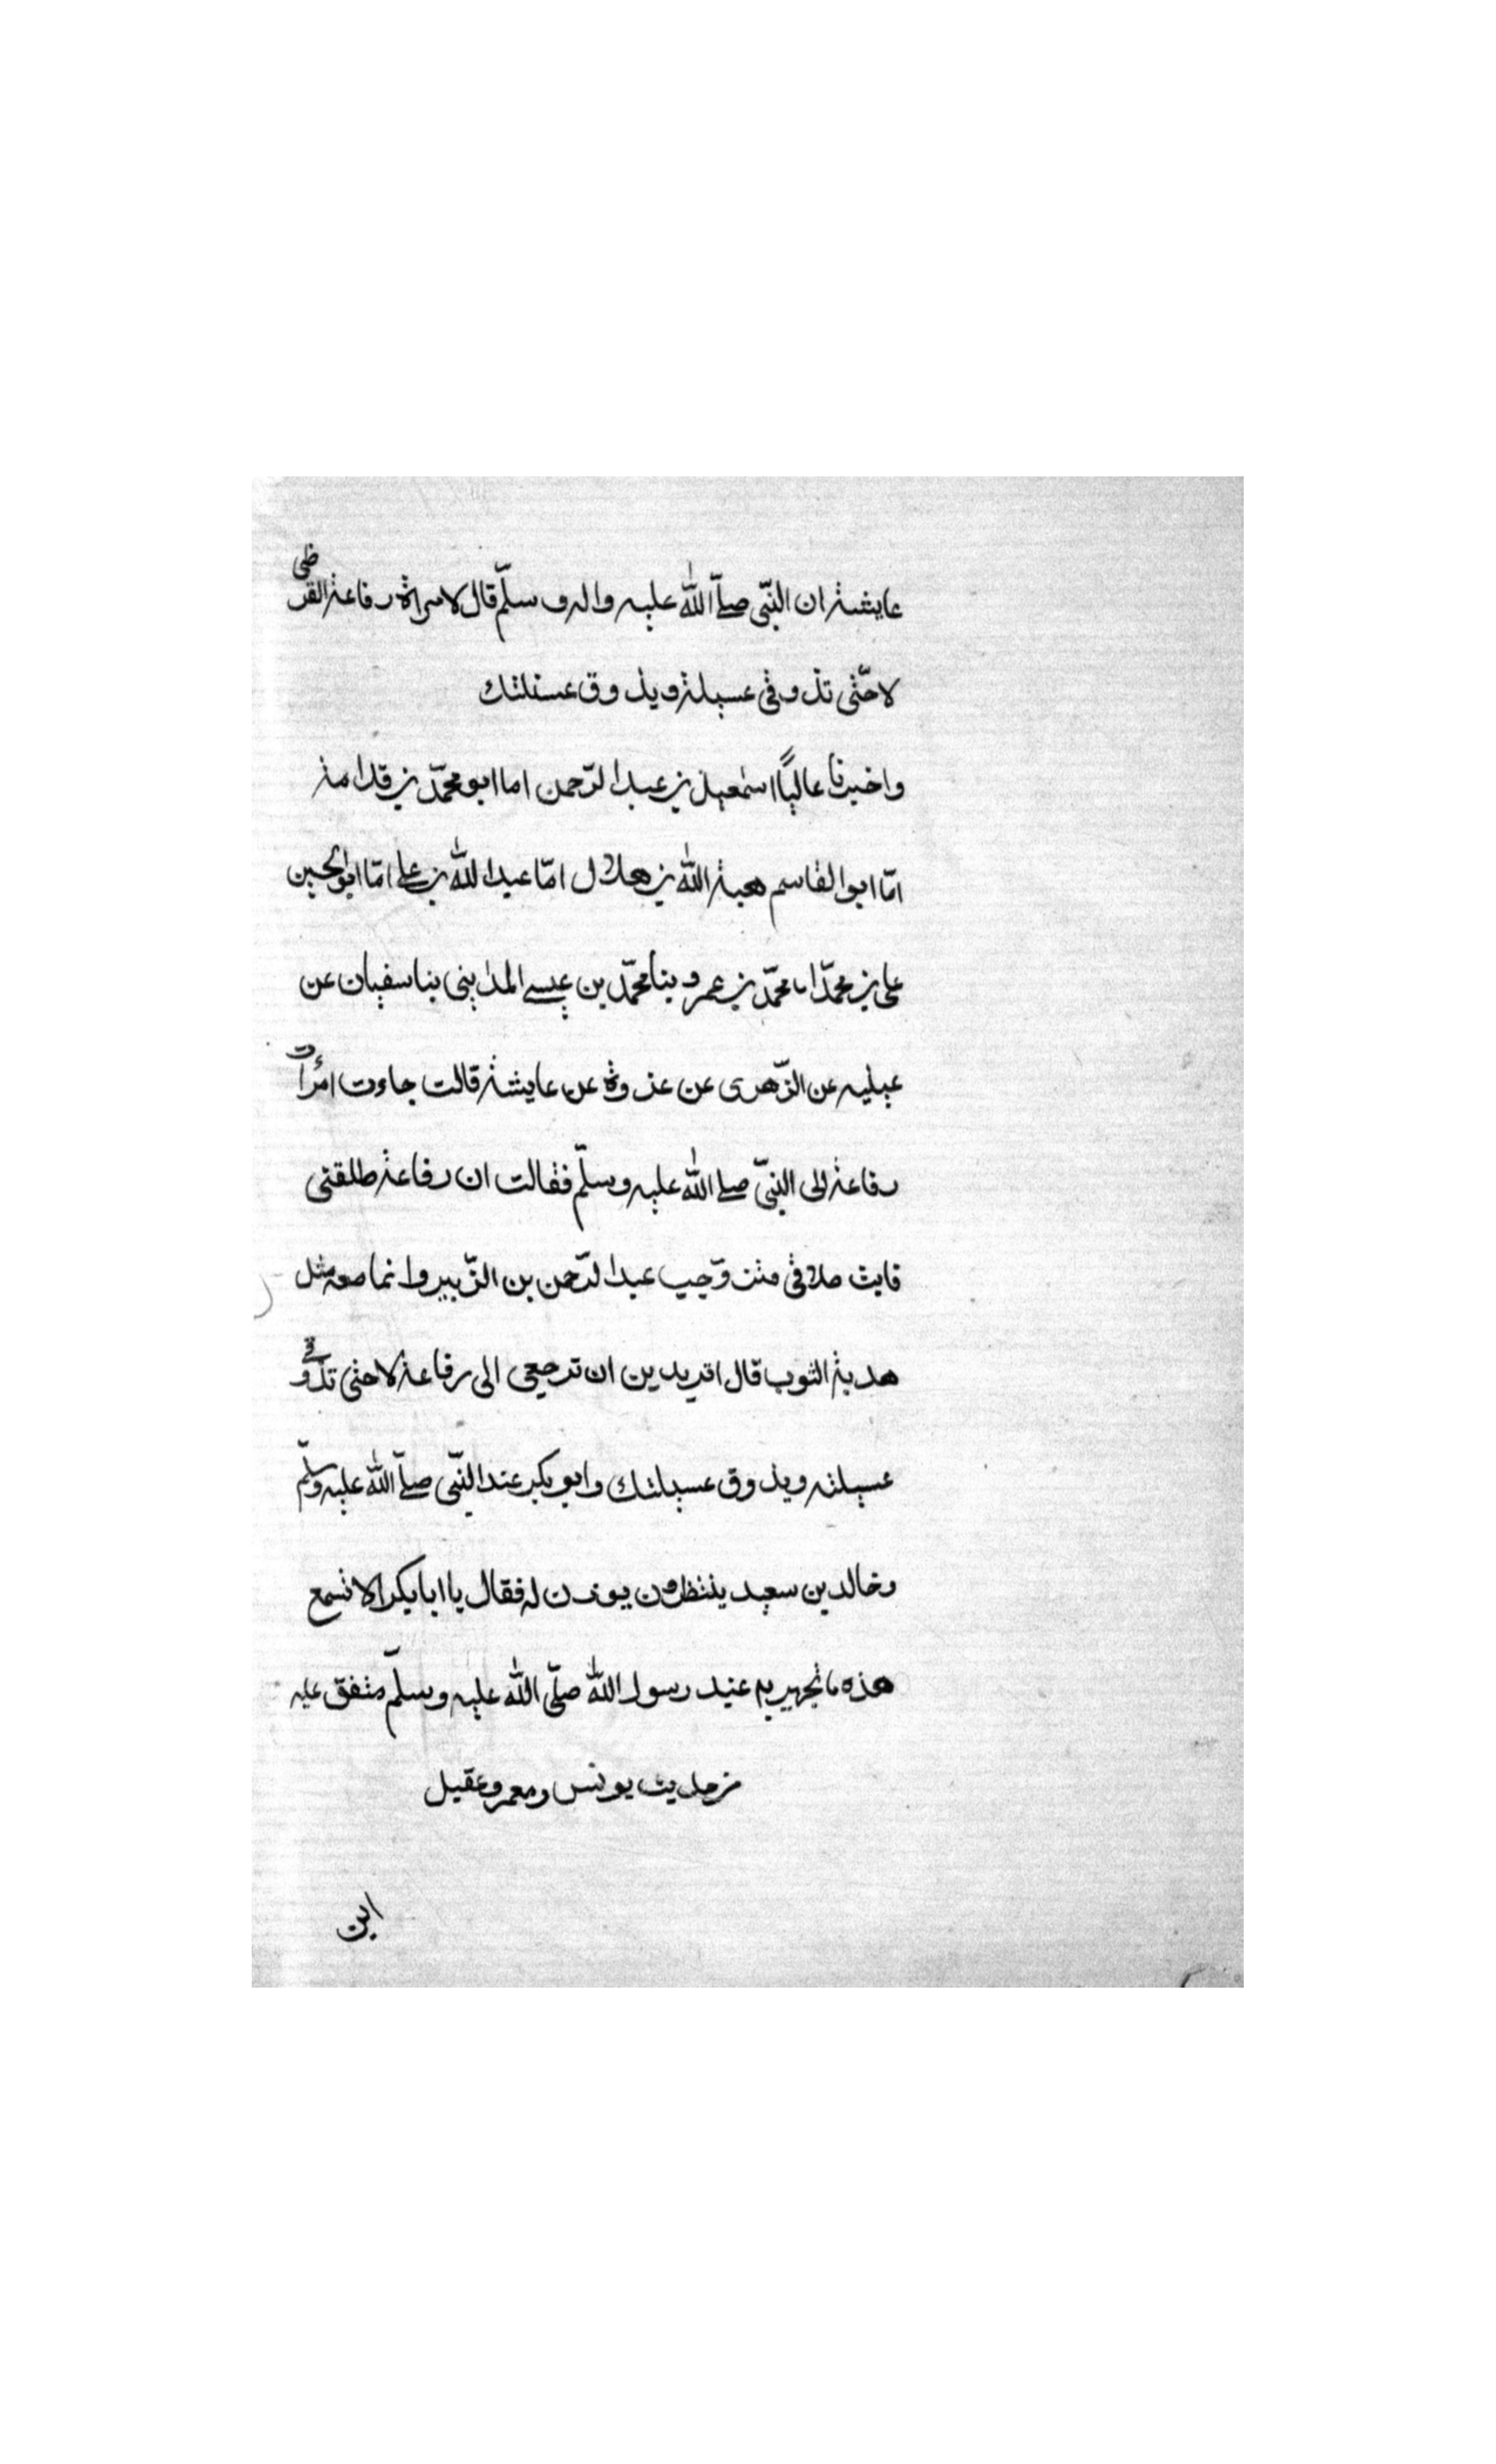 عايشة ان النبّى صلّى اللّه عليه واله وسلّم قال لامراة رفاعة القرظى
لا حتّى تذوقى عسيلة ويذوق عسيلتك
واخبرنا عاليًا اسمعيل بن عبد الرّحمن اما ابو محمّد بن قدامة
امّا ابو القاسم هبة اللّه بن هلال امّا عبد اللّه بن على امّا ابو الحسين
على بن محمّد اما محمّد بن عمرو بنا محمّد بن عيسى المداينى بنا سفيان عن
عن الزّهرى عن عروة عن عايشة قالت جاءت امرأت
رفاعة الى النبّى صلى اللّه عليه وسلّم فقالت ان رفاعة طلقنى
عبد الرّحمن بن الزّبير وانما معه مثل
هدبة الثوب قال اتريدين ان ترجعى الى رفاعة لا حتى تذوقى
عسيلته ويذوق عسيلتك وابو بكر عند النّبى صلّى اللّه عليه وسلّم
وخالد بن سعيد ينتظرون يوذن له فقال يا ابا بكر الا تسمع
هذه ما تجهر به عند رسول اللّه صلّى اللّه عليه وسلّم متفق عليه
من حديث يونس ومعمر وعقيل
ابن